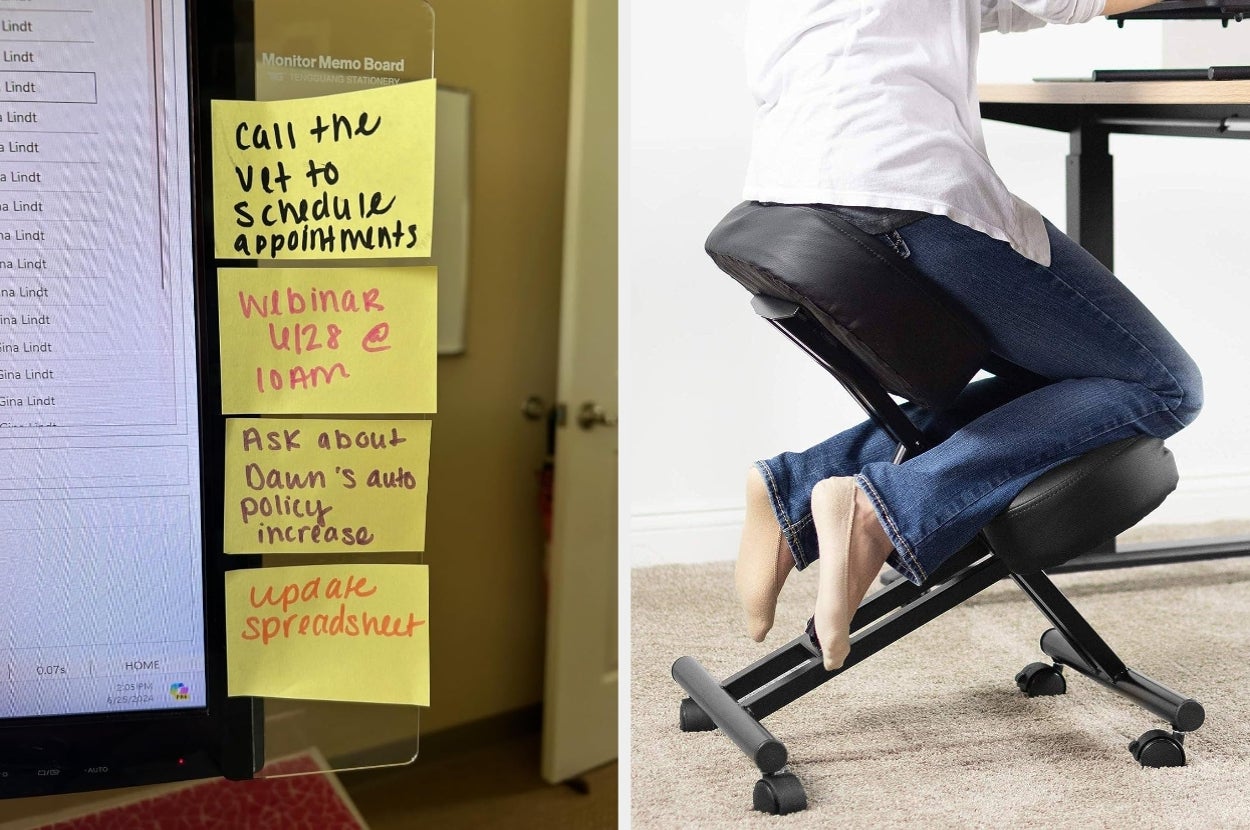 Lindt
Lindt
Lindt
a Lindt
a Lindt
a Lindt
na Lindt
na Lindt
na Lindt
na Lindt
ina Lindt
Gina Lindt
Gina Lindt
Gina Lindt
0.07s
HOME
2:05 PM
6/25/2024
AUTO
Monitor Memo Board
TENGGUANG STATIONERY
call the
vet to
schedule
appointments
Webinar
6/28 @
10AM
Ask about
Dawn's auto
policy
increase
update
spreadsheet